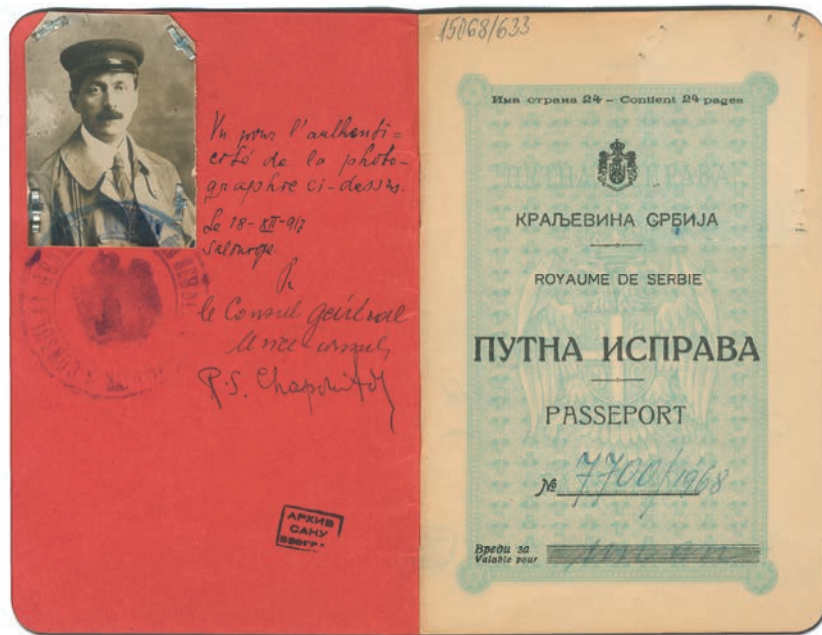 Vu pour l'authenti=
cité de la photo-
graphie ci-dessus.
Le 18-XII-917
Salonique
le Consul général
P.S.
АРХИВ
САНУ
15068/633
1
Има страна 24 – Contient 24 pages
КРАЉЕВИНА СРБИЈА
ROYAUME DE SERBIE
ПУТНА ИСПРАВА
PASSEPORT
№ 7700/1968
Вреди за
Valable pour